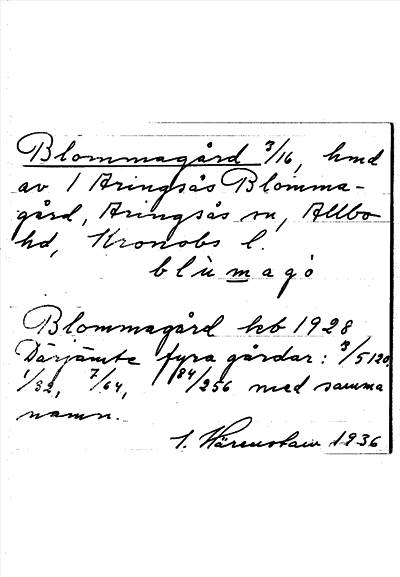 Blommagård 3/16, hmd
av 1 Aringsås Blomma-
gård, Aringsås sn, Allbo
hd, Kronobs l.
blùmagó
Blommagård kb 1928
Därjämte fyra gårdar: 3/5120,
1/32, 7/64, 84/256 med samma
namn.
1936